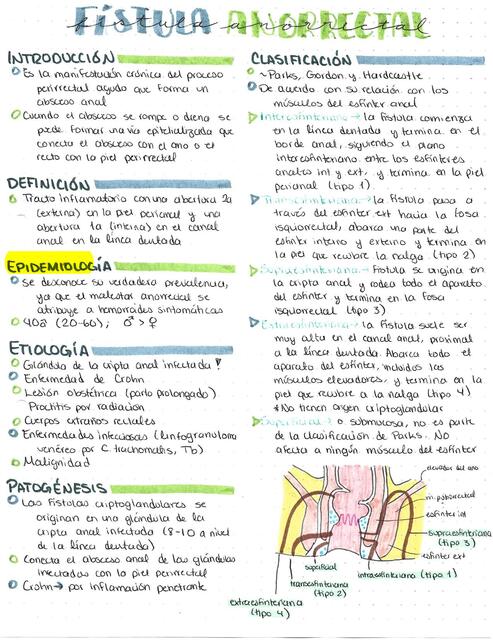 FÍSTULA ANORRECTAL
fístula anorrectal
INTRODUCCIÓN
Es la manifestación crónica del proceso
perirrectal agudo que forma un
absceso anal
Cuando el absceso se rompe o drena se
puede formar una vía epitelializada que
conecta el absceso con el ano o el
recto con la piel perirrectal
DEFINICIÓN
Tracto inflamatorio con una abertura 2a
(externa) en la piel perianal y una
abertura 1a (interna) en el canal
anal en la línea dentada
EPIDEMIOLOGÍA
Se desconoce su verdadera prevalencia,
ya que el malestar anorrectal se
atribuye a hemorroides sintomáticas
40a (20-60); ♂ > ♀
ETIOLOGÍA
Glándula de la cripta anal infectada !
Enfermedad de Crohn
Lesión obstétrica (parto prolongado)
Proctitis por radiación
Cuerpos extraños rectales
Enfermedades infecciosas (linfogranuloma
venéreo por C. trachomatis, Tb)
Malignidad
PATOGÉNESIS
Las fístulas criptoglandulares se
originan en una glándula de la
cripta anal infectada (8-10 a nivel
de la línea dentada)
Conecta el absceso anal de las glándulas
infectadas con la piel perirrectal
Crohn → por inflamación penetrante
CLASIFICACIÓN
~Parks, Gordon y Hardcastle.
De acuerdo con su relación con los
músculos del esfínter anal
Interesfinteriana → la fístula comienza
en la línea dentada y termina en el
borde anal, siguiendo el plano
interesfinteriano entre los esfínteres
anales int y ext, y termina en la piel
perianal (tipo 1)
Transesfinteriana → la fístula pasa a
través del esfínter ext hacia la fosa
isquiorrectal, abarca una parte del
esfínter interno y externo y termina en
la piel que recubre la nalga. (tipo 2)
Supraesfinteriana → Fístula se origina en
la cripta anal y rodea todo el aparato
del esfínter y termina en la fosa
isquiorrectal (tipo 3)
Extraesfinteriana → la fístula suele ser
muy alta en el canal anal, proximal
a la línea dentada. Abarca todo el
aparato del esfínter, incluidos los
músculos elevadores, y termina en la
piel que recubre a la nalga (tipo 4)
*No tienen origen criptoglandular
Superficial → o submucosa, no es parte
de la clasificación de Parks. No
afecta a ningún músculo del esfínter
elevador del ano
m. puborrectal
esfínter int
supraesfinteriana
(tipo 3)
esfínter ext
superficial
interesfinteriana (tipo 1)
transesfinteriana
(tipo 2)
extraesfinteriana
(tipo 4)